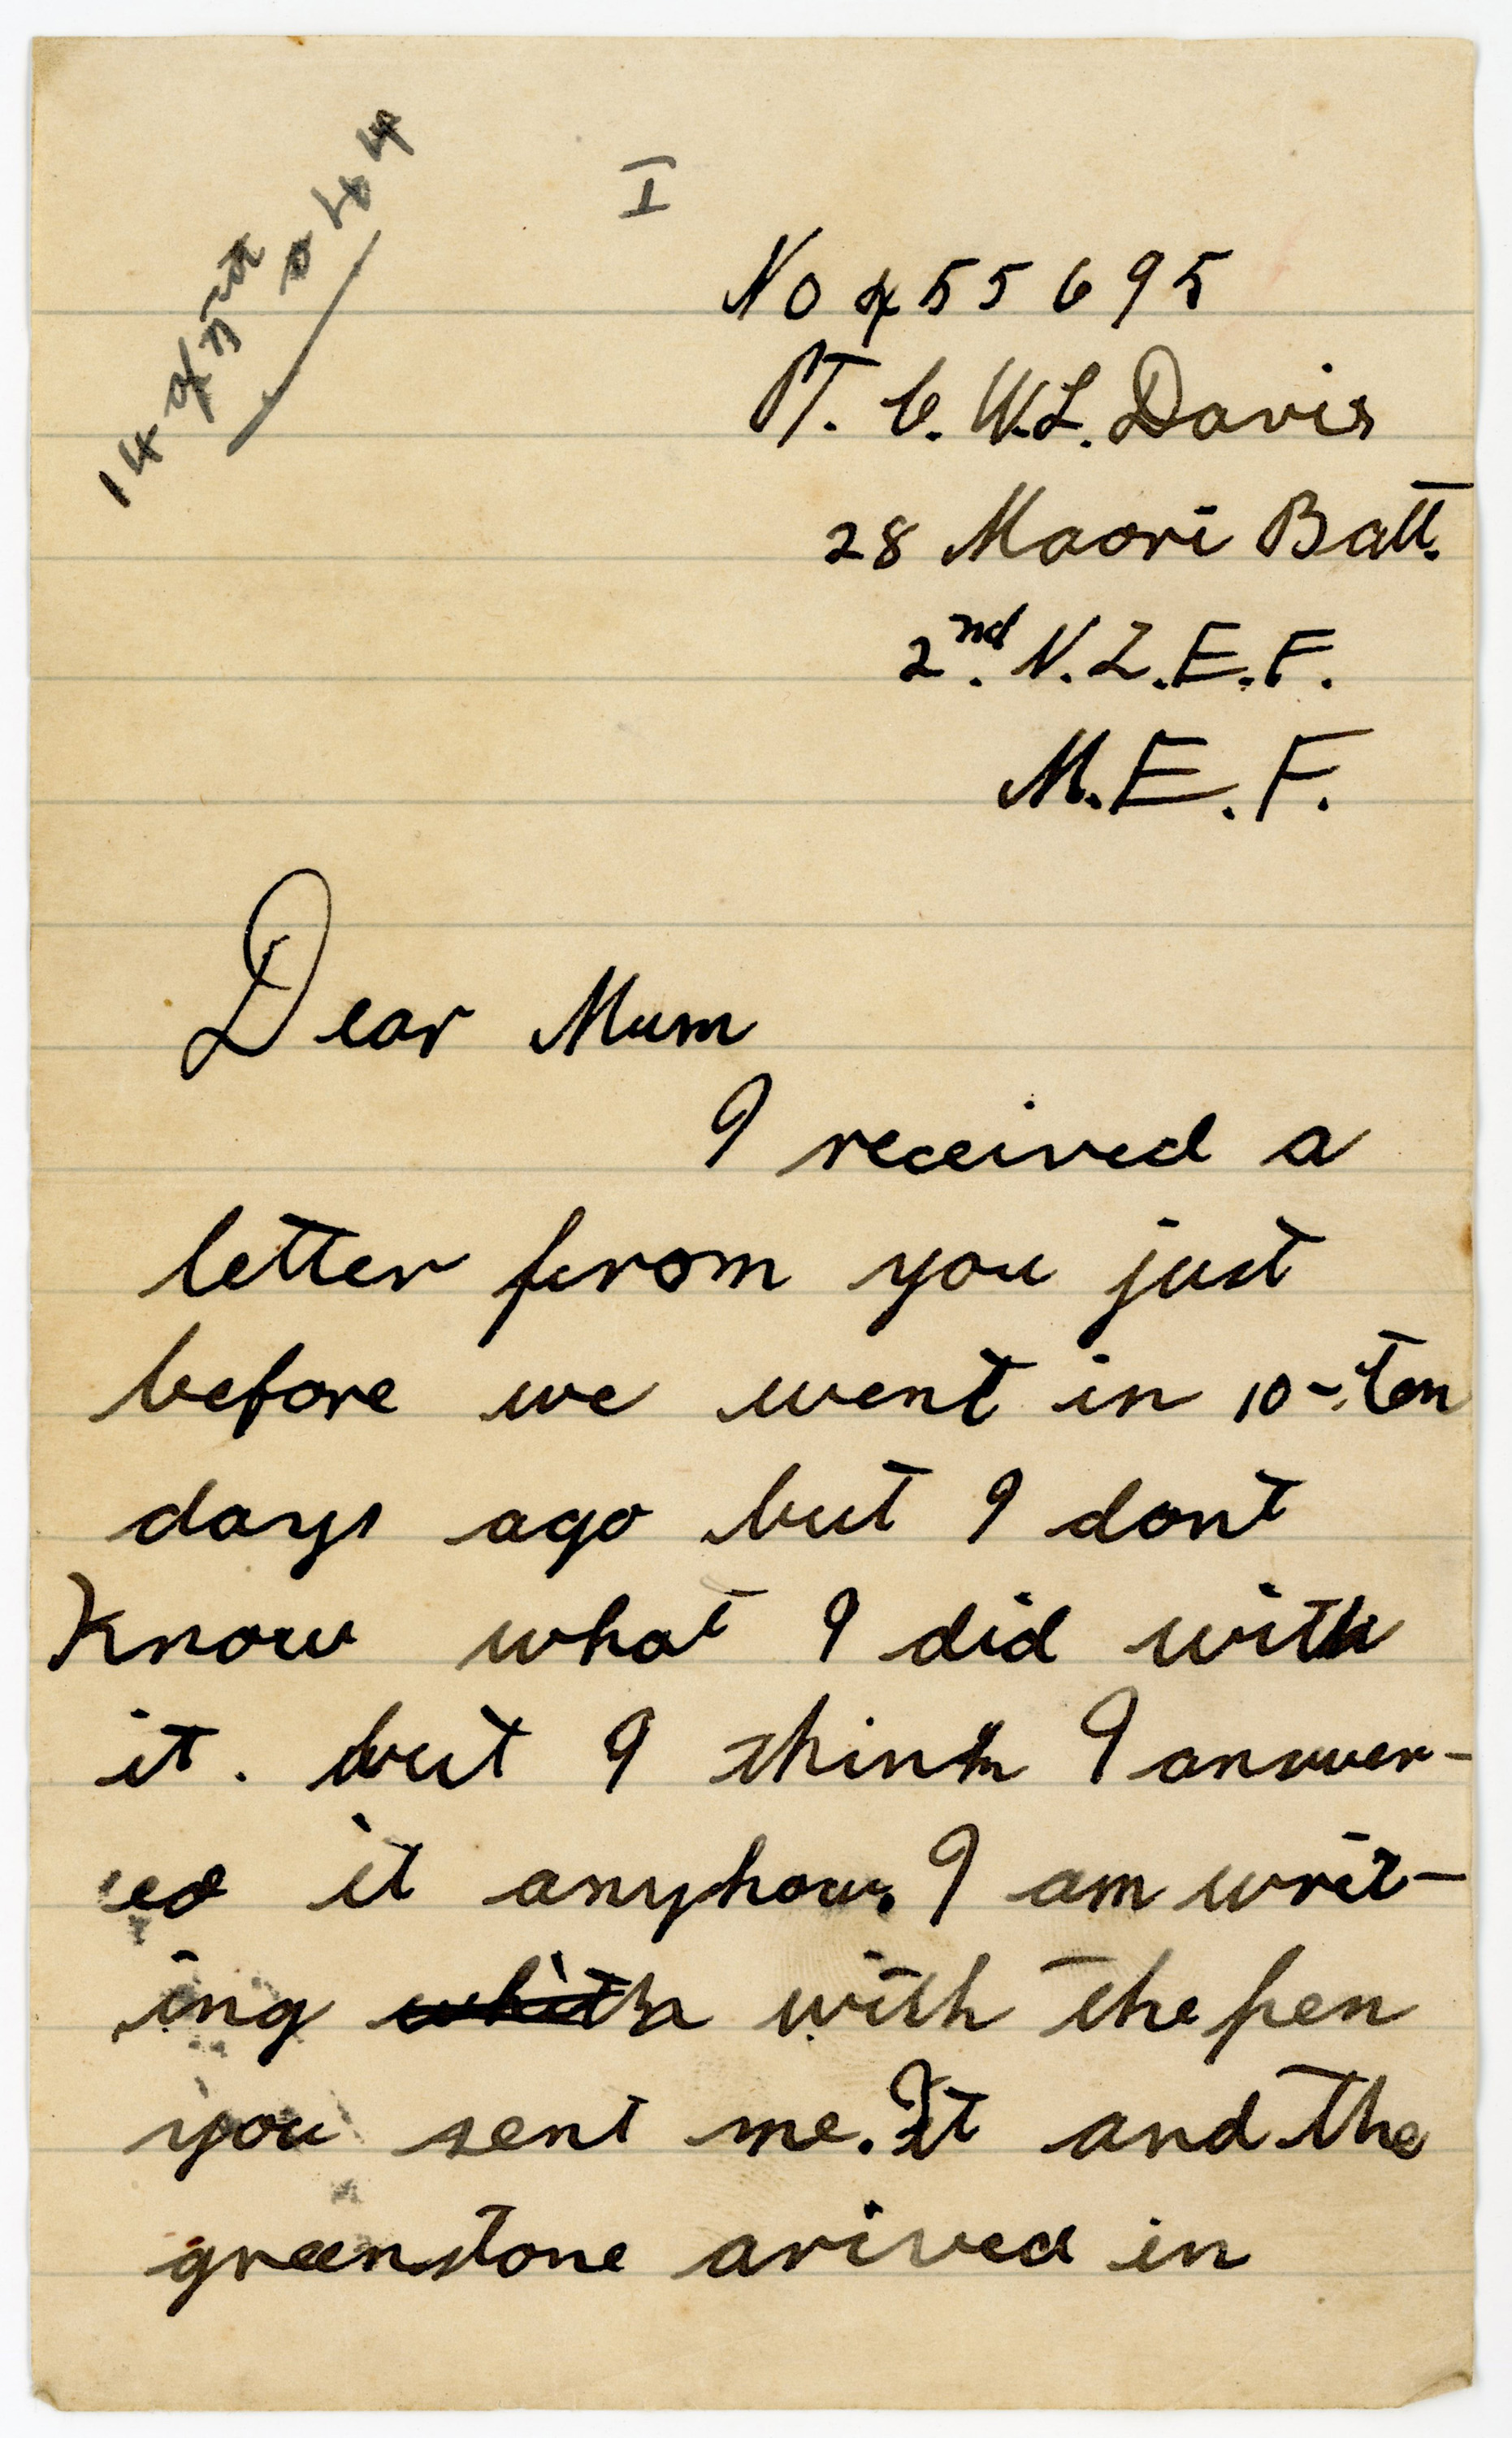 I
No 455695
PT. C. W.L. Davis
28 Maori Batt.
2nd. N.Z.E.F.
M.E.F.
Dear Mum
I received a
letter from you just
before we went in 10-ten
days ago but I dont
know what I did with
it. but I think I answer-
ed it anyhow, I am writ-
ing whith with the pen
you sent me. It and the
greenstone arived in